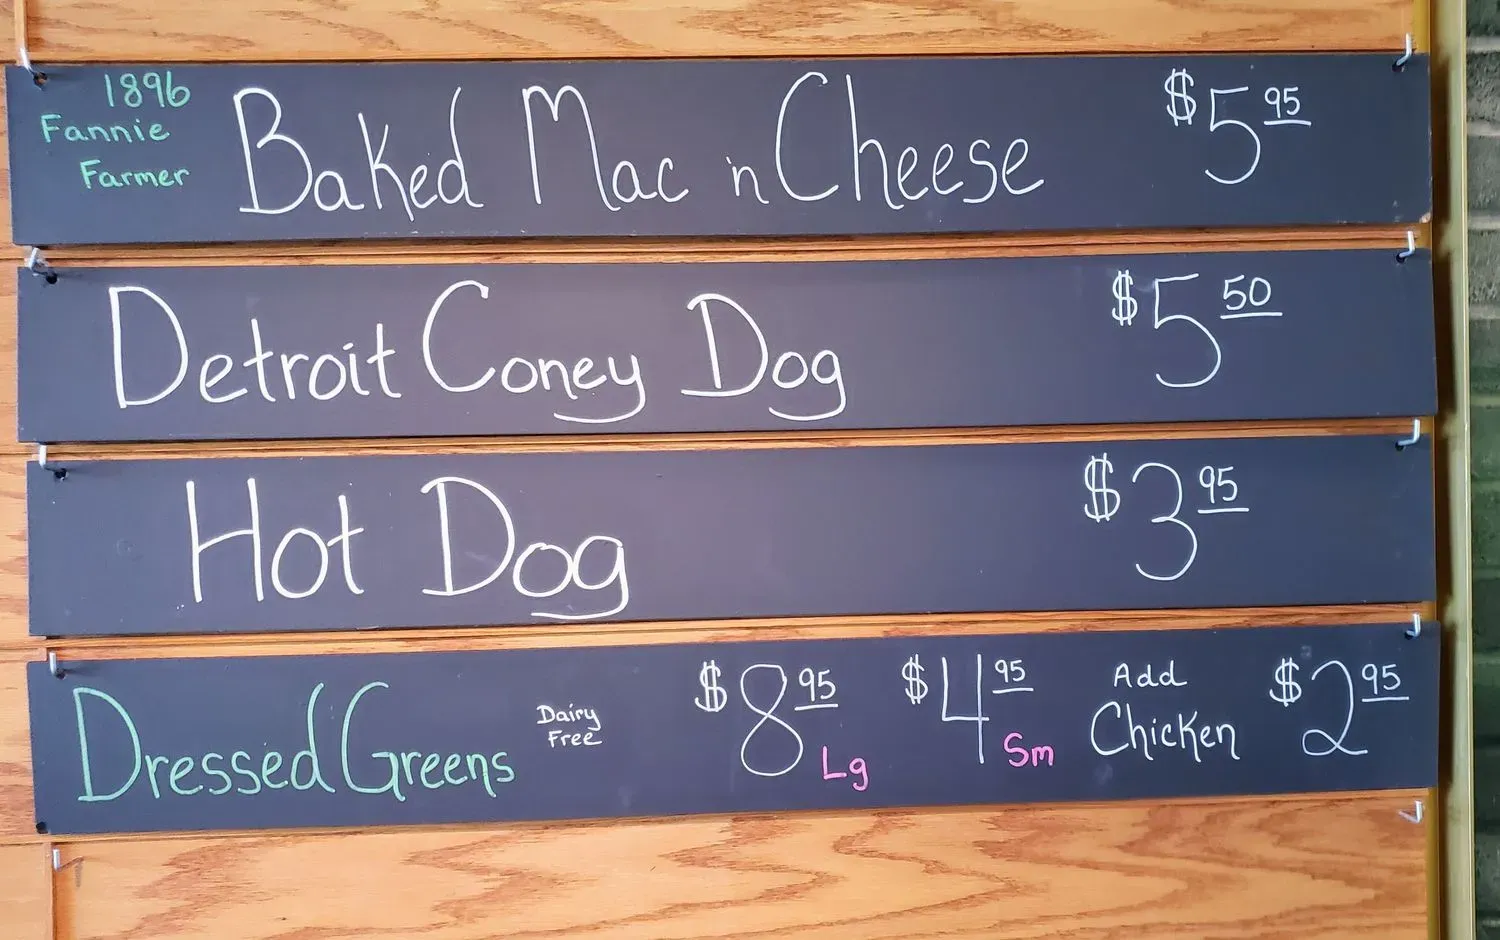 1896
Fannie
Farmer
Baked Mac 'n Cheese $5.95
Detroit Coney Dog $5.50
Hot Dog $3.95
Dressed Greens
Dairy
Free
$8.95 Lg $4.95 Sm
Add
Chicken $2.95